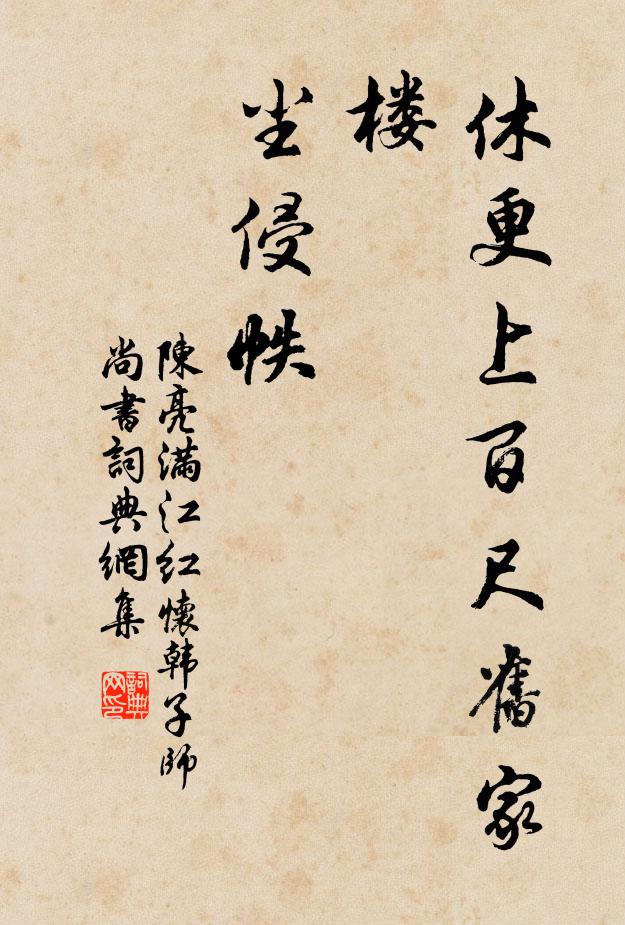 休更上百尺舊家
楼
尘侵帙
陳亮滿江紅懷韓子師
尚書詞典網集
詞典
网印